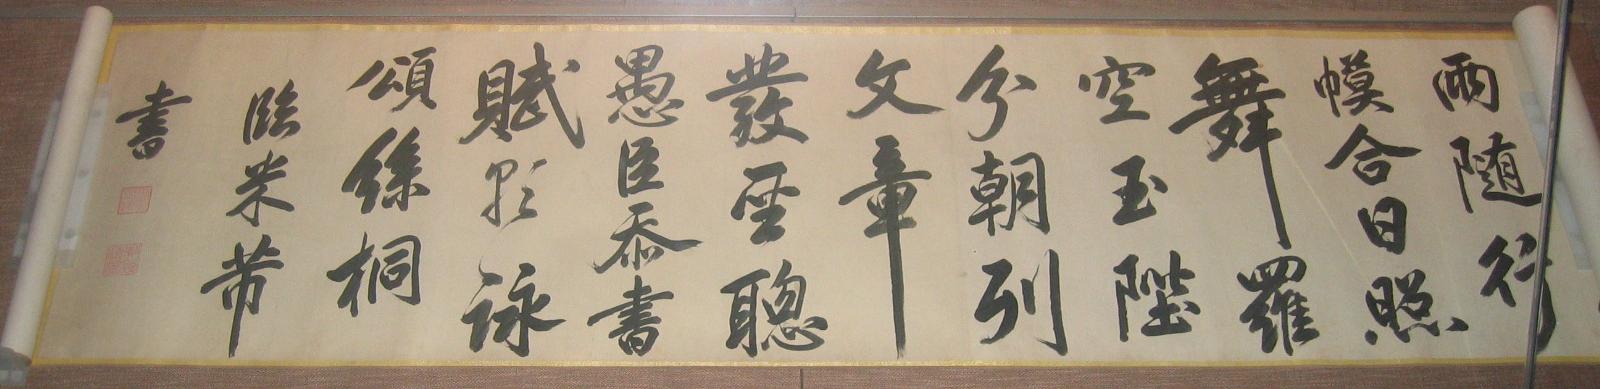 雨随行
幙合日照
舞羅
空玉陛
分朝列
文章
發聖聰
愚臣忝書
賦影詠
頌絲桐
臨米芾
書